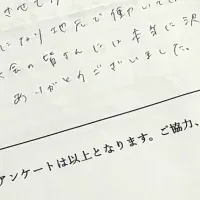 させて
になり地元で働いて
会の皆さんには本当に沢
ありがとうございました。
アンケートは以上となります。ご協力、